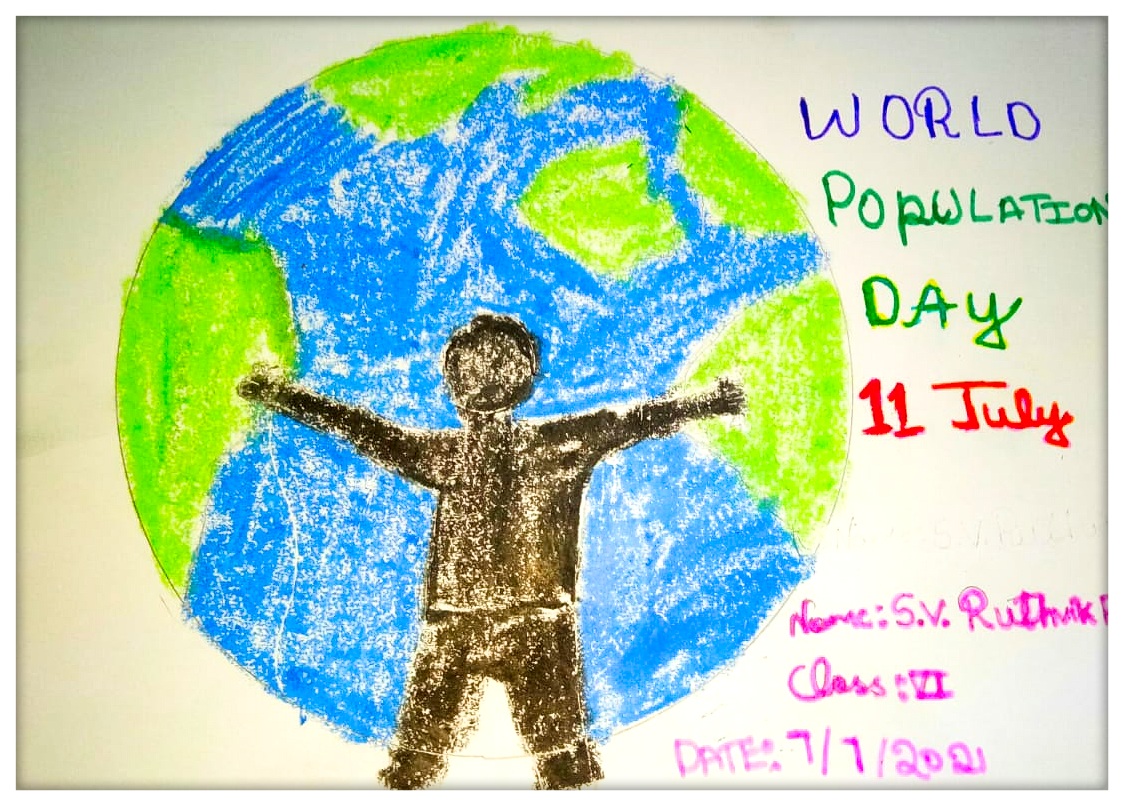 WORLD
POPULATION
DAY
11 July
Name: S.V. Ruthvik
Class: VI
DATE: 7/7/2021